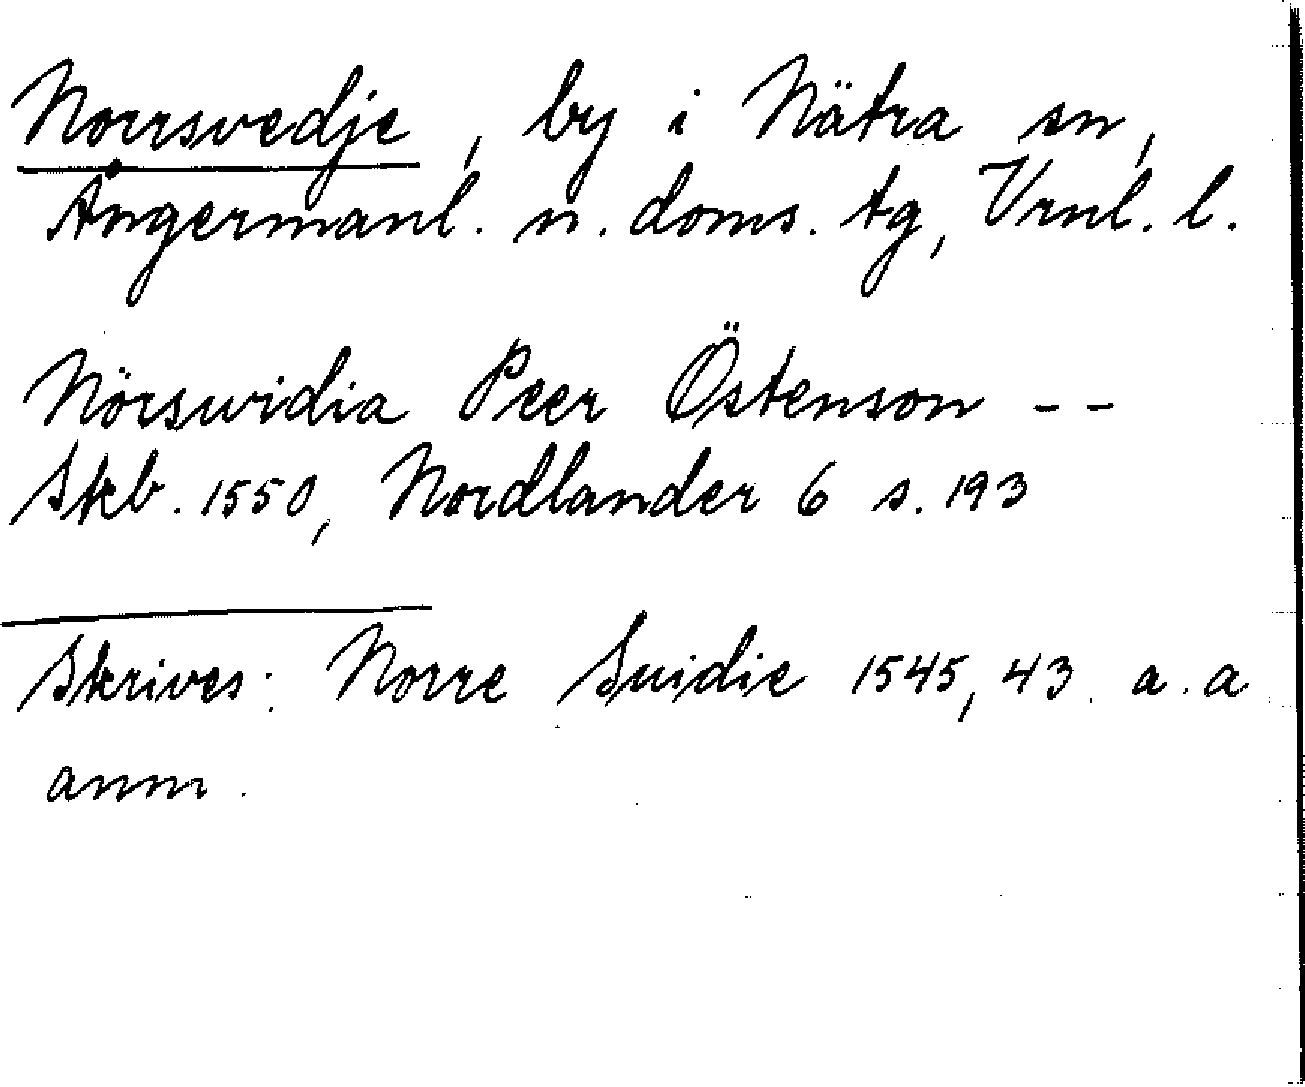 Norrsvedje, by i Nätra sn,
Ångermanl. n. doms. tg, Vrnl. l.
Nörswidia Peer Östenson --
Skb. 1550, Nordlander 6 s. 193
Skrives: Norre Suidie 1545, 43. a. a
anm.